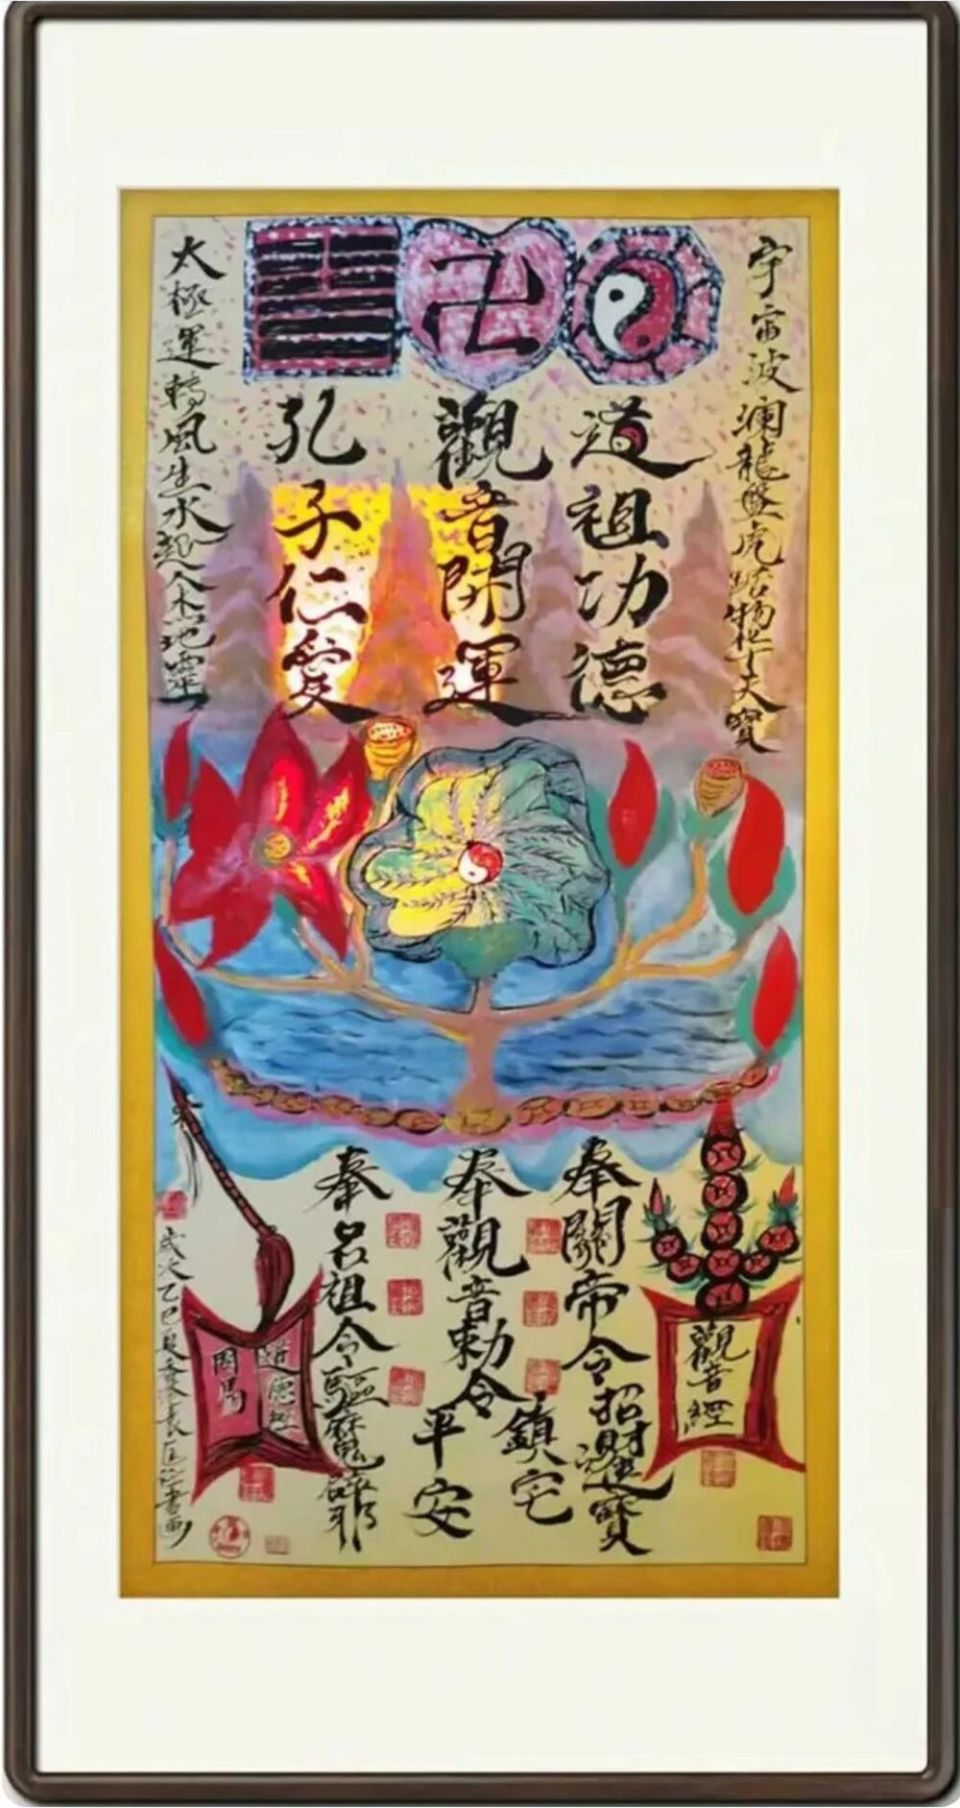 宇宙波瀾龍盤虎踞物華天寶
道祖功德
觀音開運
孔子仁愛
太極運轉風生水起人杰地靈
觀音經
奉關帝令招財進寶
奉觀音勅令
鎮宅
平安
奉呂祖令驅魔辟邪
道德經
周易
歲次乙巳夏 書画